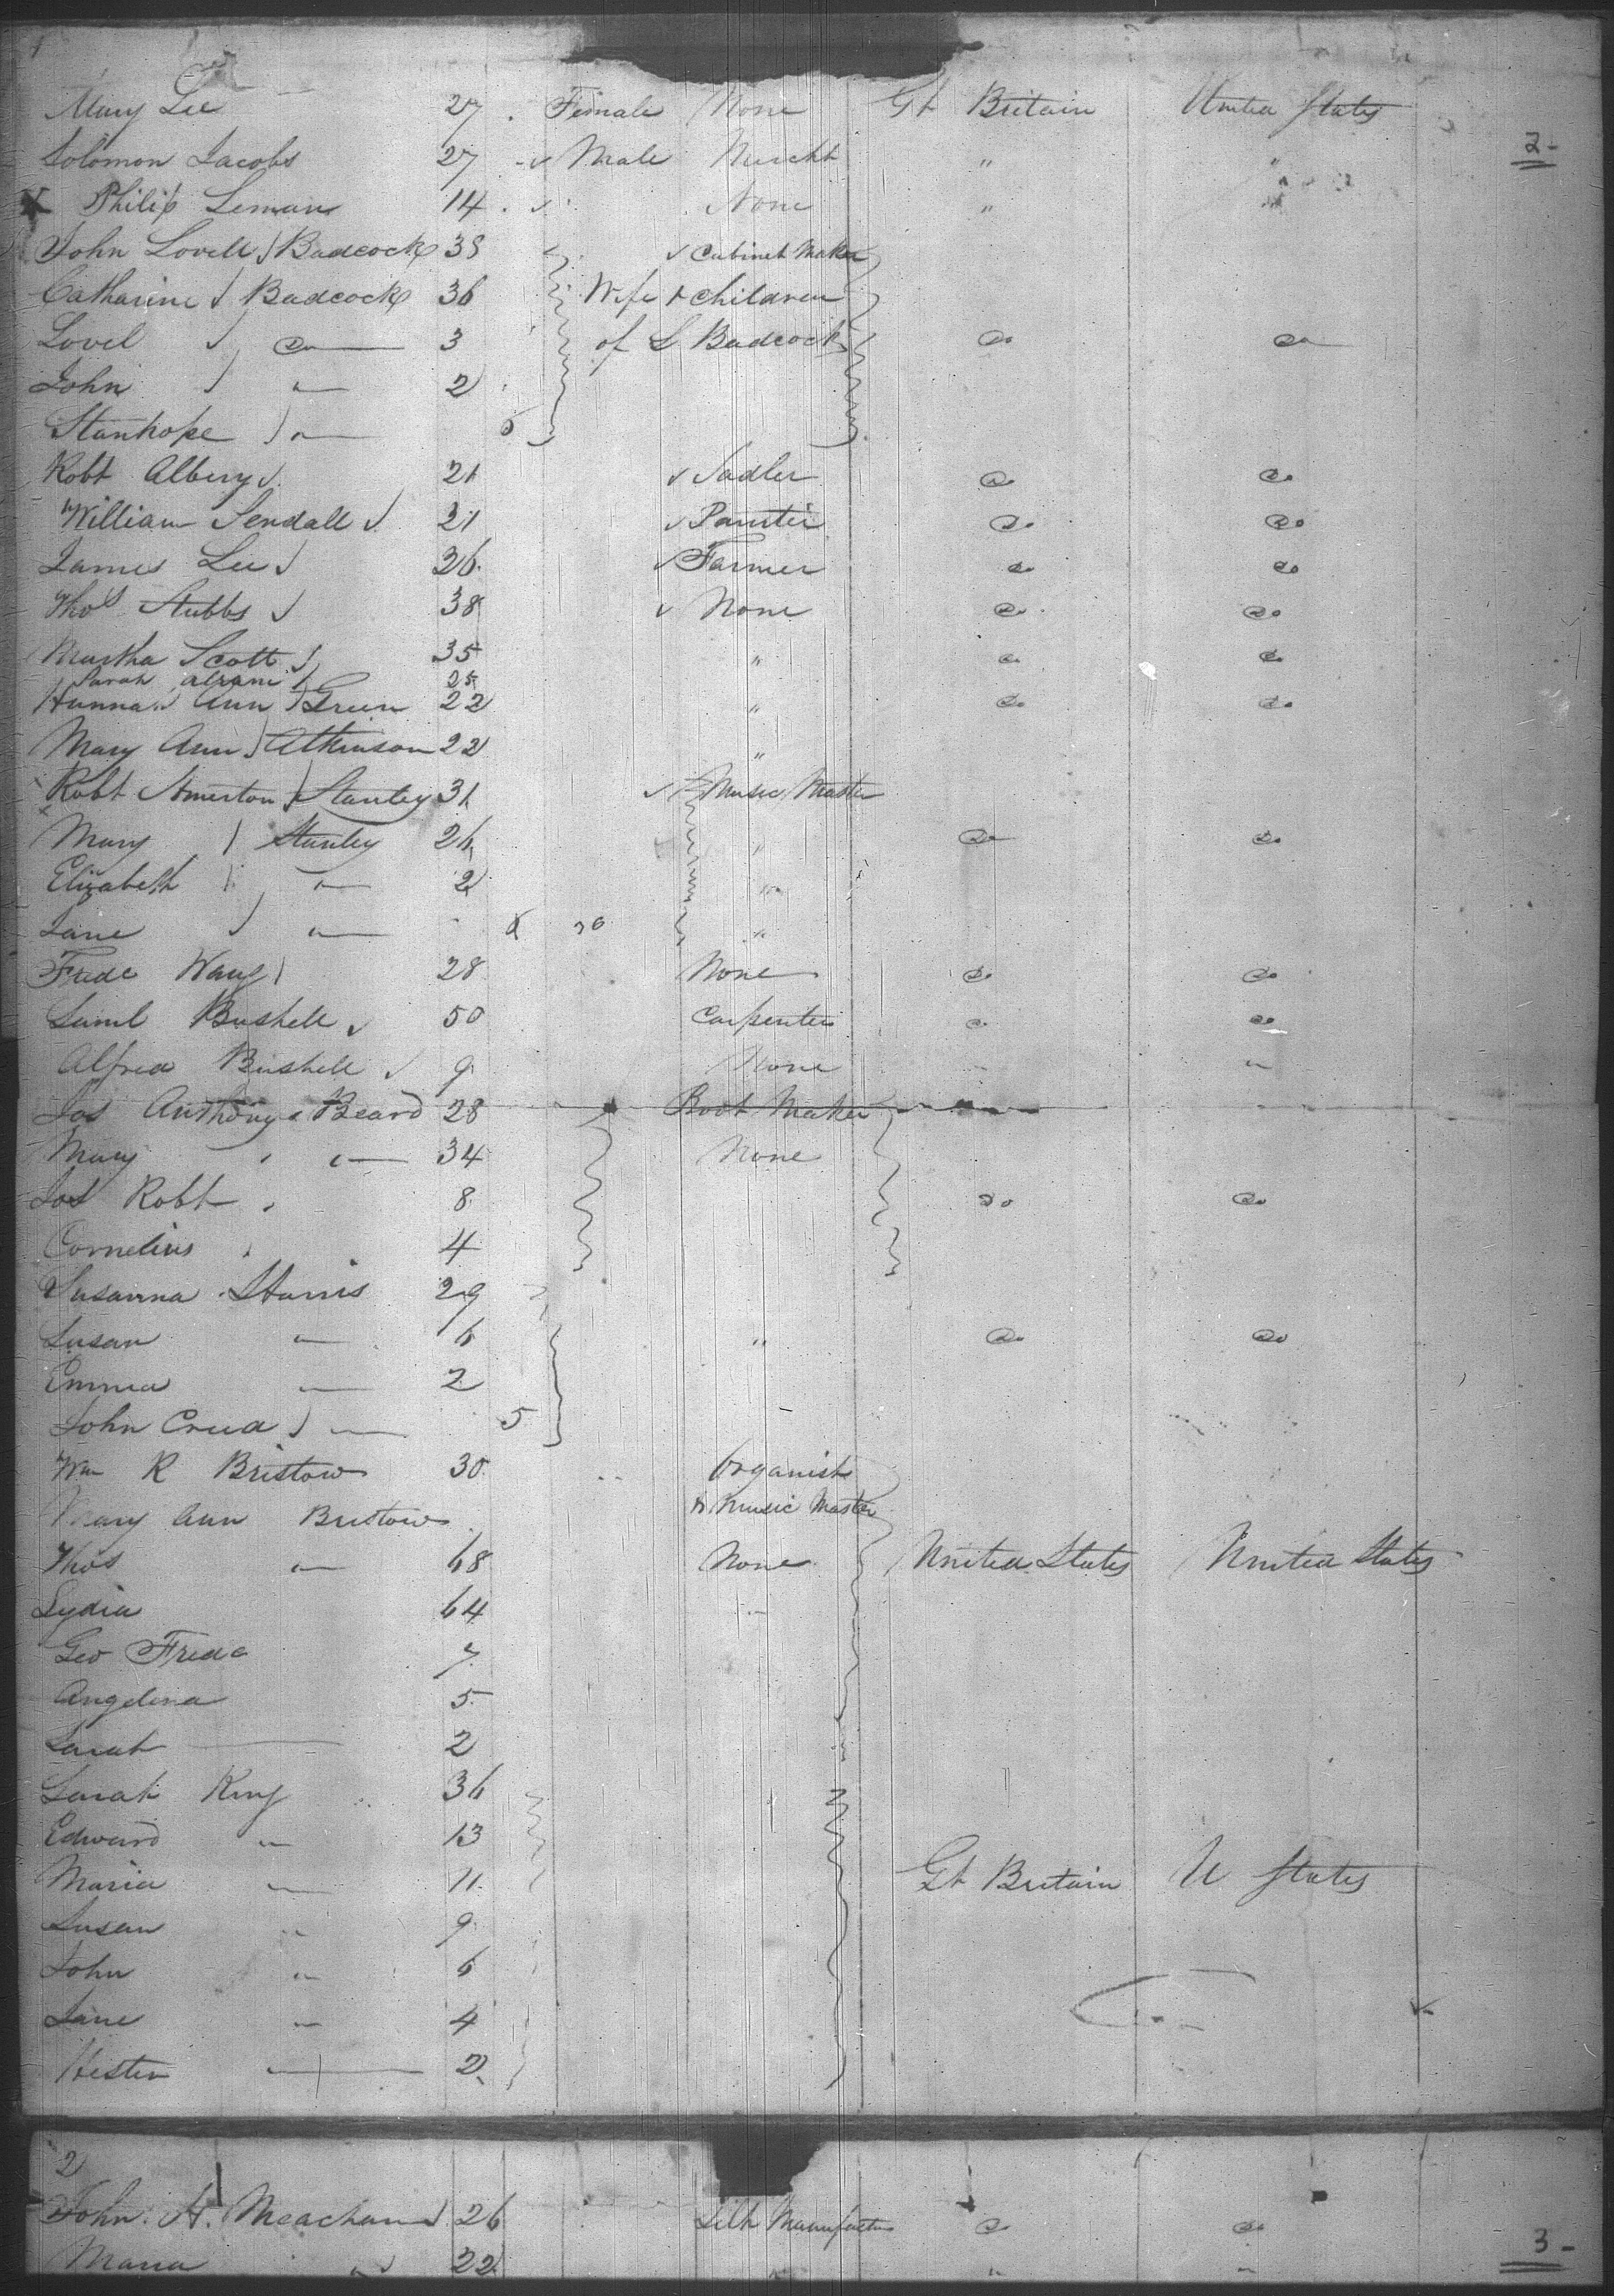 1
Mary Lee 27 Female None Gt Britain United States
Solomon Jacobs 27 Male Mercht " " 2-
X Philip Leman 14 None "
John Lovell Badcock 38 Cabinet Maker
Catharine Badcock 36 Wife & children
Lovel Do 3 of L Badcock Do Do
John " 2
Stanhope "
Robt Albery 21 Sadler Do Do
William Sendall 21 Painter Do Do
James Lee 26 Farmer Do Do
Thos Stubbs 38 None Do Do
Martha Scott 35 " Do Do
Sarah 25
Hanna Ann Green 22 " Do Do
Mary Ann Atkinson 22 "
Robt Stanley 31 Music Master
Mary Stanley 26 " Do Do
Elizabeth " 2 "
Jane " "
Fredc 28 None Do Do
Saml Bushell 50 Carpenter Do Do
Alfred Bushell 9 None " "
Jos Anthony Beard 28 Boot Maker
Mary " 34 None
Jos Robt 8 Do Do
Cornelius 4
Susanna 29
Susan " 6 " Do Do
Emma " 2
John " 5
Wm R Bristow 30 Organist
Mary Ann Bristow & Music Master
Thos " 68 None United States United States
Lydia 64 "
Geo Fredc 7
Angelina 5
Sarah 2
Sarah King 36
Edward " 13
Maria " 11 Gt Britain U States
Susan " 9
John " 6
Jane " 4
Hester " 2
2
John H. Meacham 26 Silk Manufactur Do Do
Maria " 22 " " " 3-